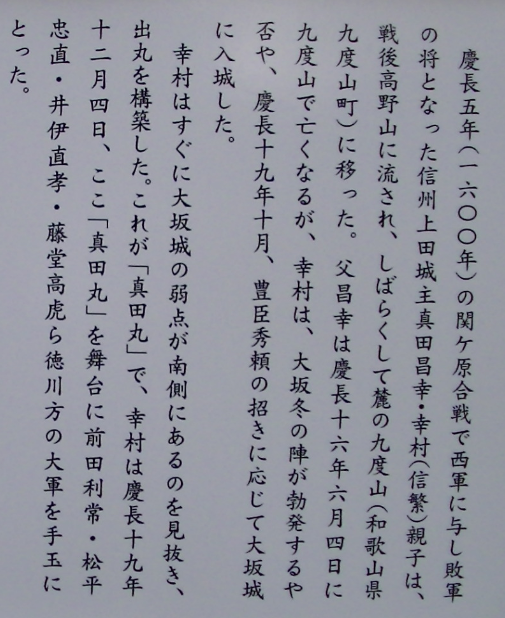 慶長五年（一六〇〇年）の関ケ原合戦で西軍に与し敗軍
の将となった信州上田城主真田昌幸・幸村（信繁）親子は、
戦後高野山に流され、しばらくして麓の九度山（和歌山県
九度山町）に移った。父昌幸は慶長十六年六月四日に
九度山で亡くなるが、幸村は、大坂冬の陣が勃発するや
否や、慶長十九年十月、豊臣秀頼の招きに応じて大坂城
に入城した。
幸村はすぐに大坂城の弱点が南側にあるのを見抜き、
出丸を構築した。これが「真田丸」で、幸村は慶長十九年
十二月四日、ここ「真田丸」を舞台に前田利常・松平
忠直・井伊直孝・藤堂高虎ら徳川方の大軍を手玉に
とった。